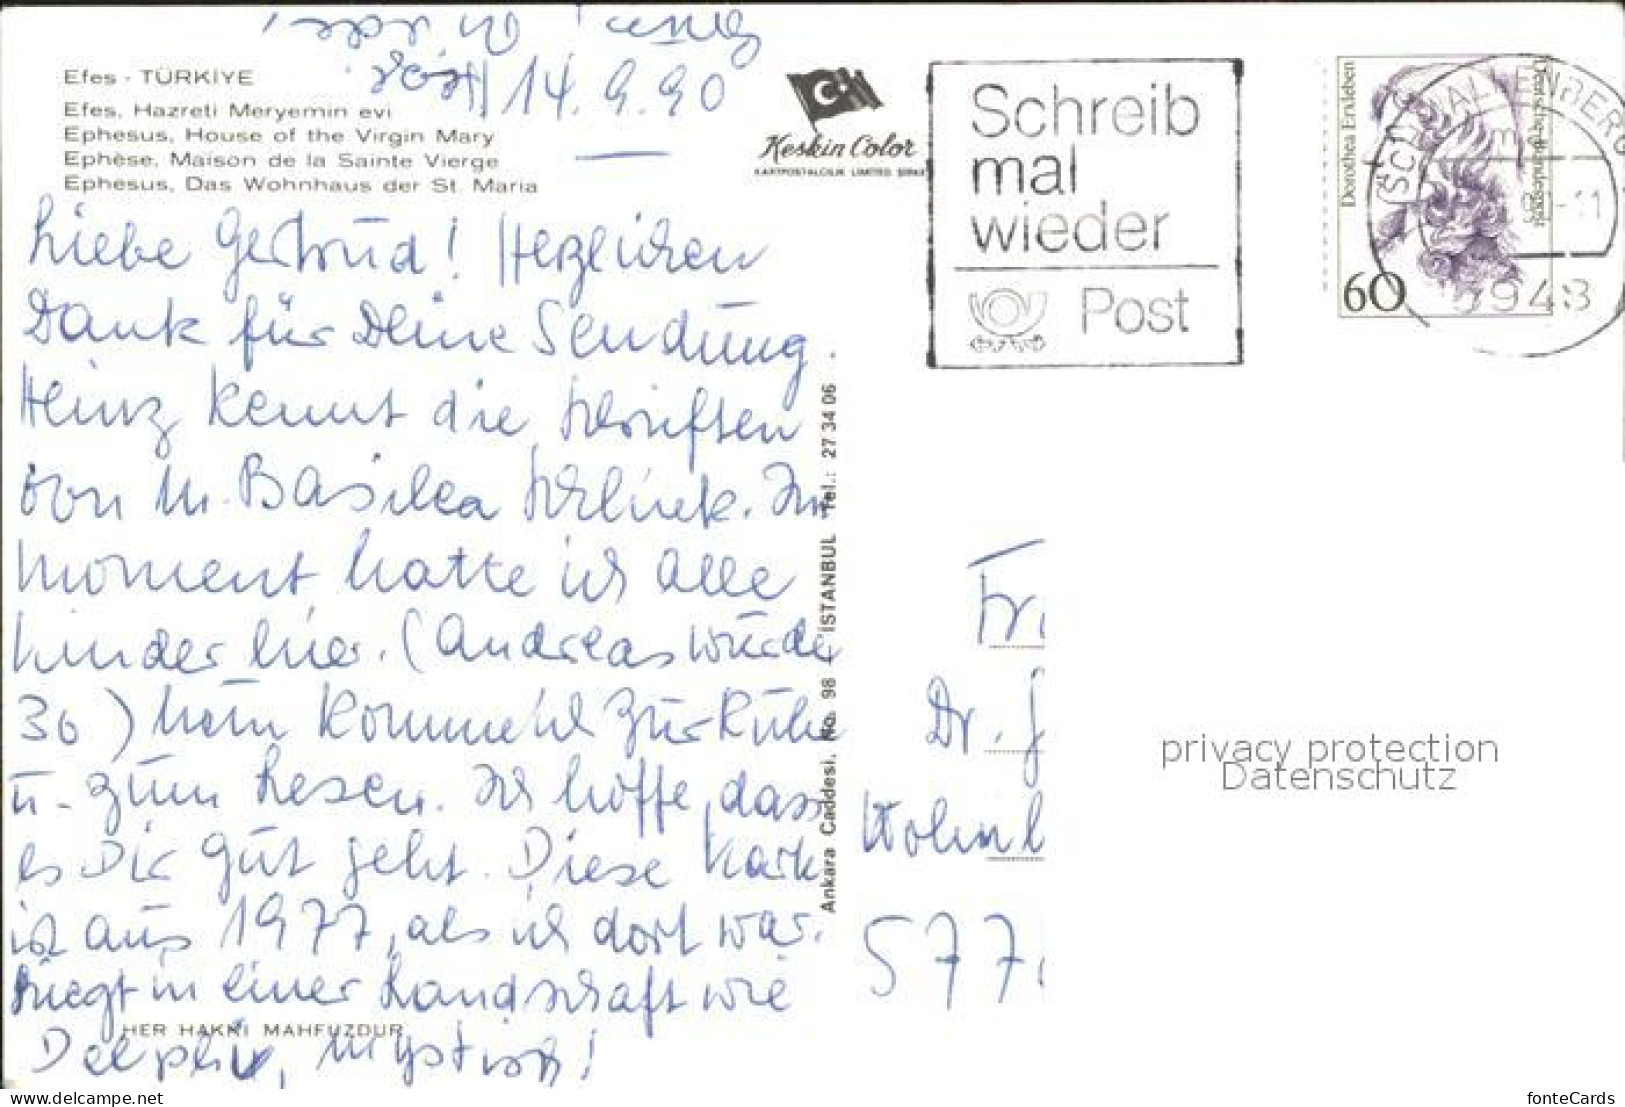 Efes - TÜRKİYE
14.9.90
Efes, Hazreti Meryemin evi
Ephesus, House of the Virgin Mary
Ephèse, Maison de la Sainte Vierge
Ephesus, Das Wohnhaus der St. Maria
Keskin Color
KARTPOSTALCILIK LIMITED ŞİRKETİ
Schreib
mal
wieder
Post
Dorothea Erxleben
Deutsche Bundespost
60
Liebe Gertrud! Herzlichen
Dank für Deine Sendung.
Heinz kennt die Schriften
von M. Basilea Schlink. Im
Moment hatte ich alle
Kinder hier. (Andreas wurde
30)
u. zum Lesen. Ich hoffe, dass
es Dir gut geht. Diese Karte
ist aus 1977, als ich dort war.
Liegt in einer Landschaft wie
Delphi, mystisch!
HER HAKKI MAHFUZDUR
Ankara Caddesi, No. 98 - İSTANBUL Tel.: 27 34 06
Dr.
577
privacy protection
Datenschutz
www.delcampe.net
fonteCards